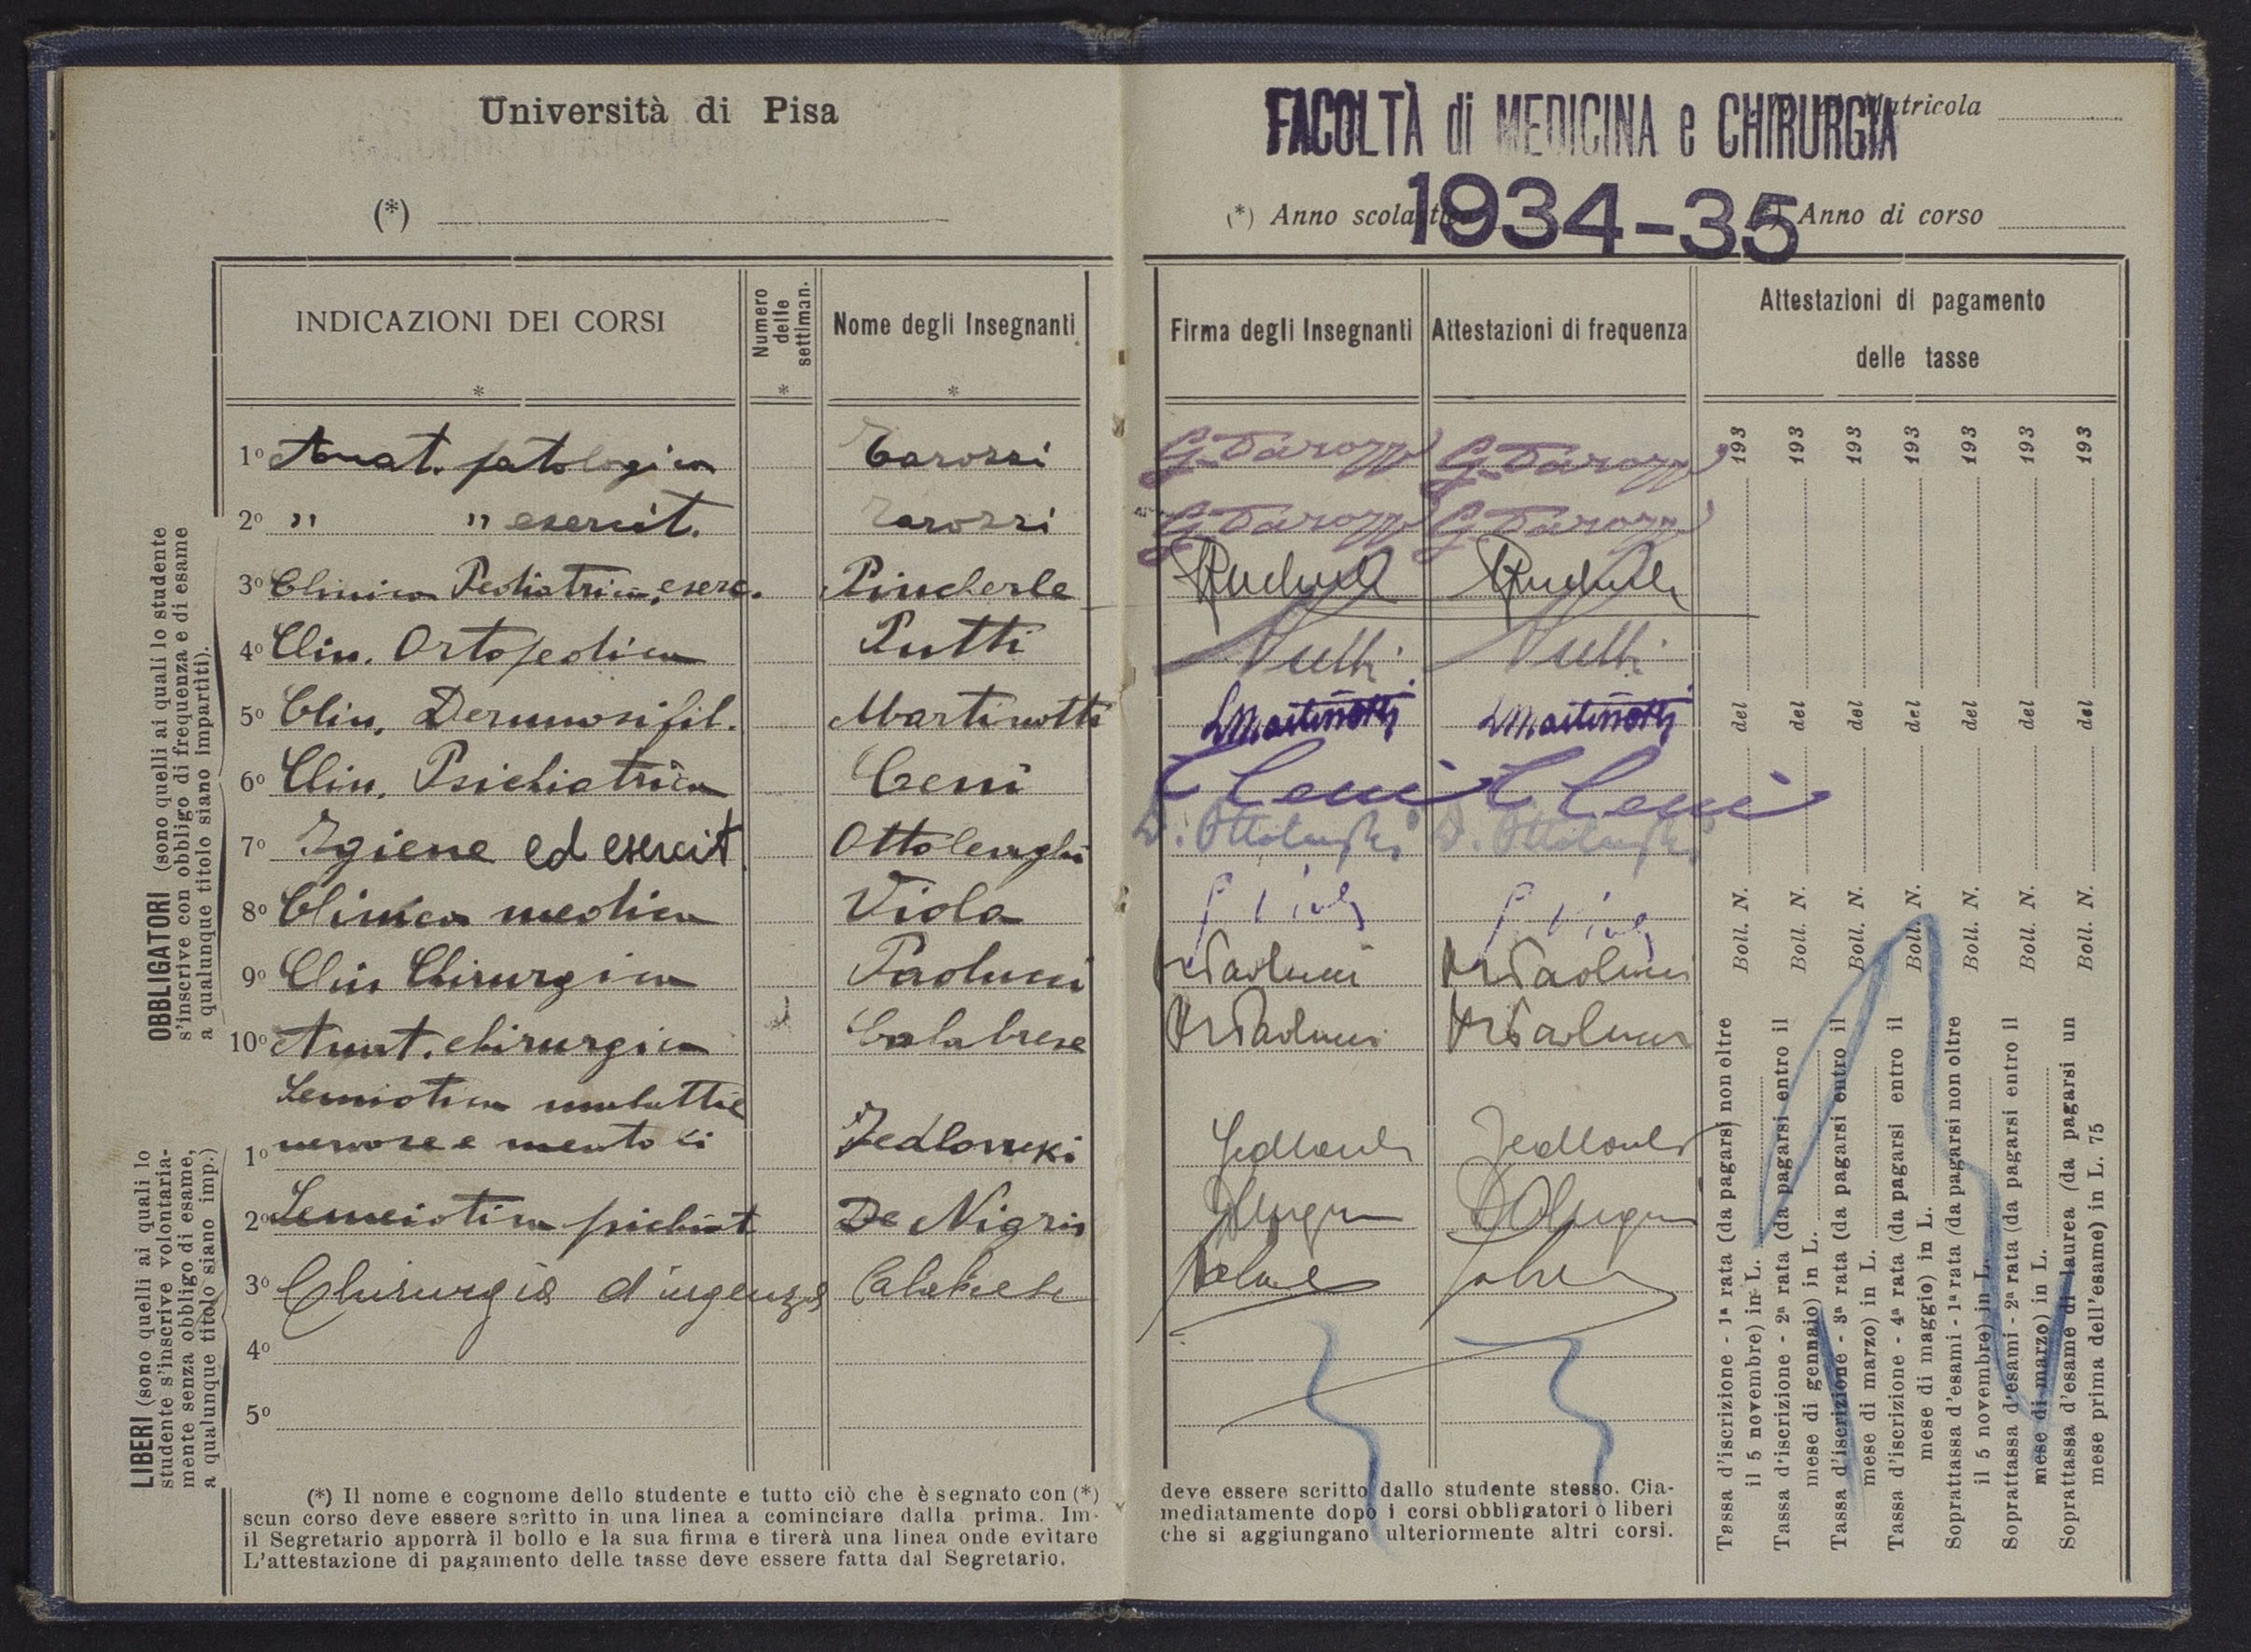 Università di Pisa
(*)
INDICAZIONI DEI CORSI
*
Numero delle settiman.
*
Nome degli Insegnanti
*
OBBLIGATORI (sono quelli ai quali lo studente
s'inscrive con obbligo di frequenza e di esame
a qualunque titolo siano impartiti).
1º Anat. patologica Tarozzi
2º " " esercit. Tarozzi
3º Clinica Pediatrica, eserc. Pincherle
4º Clin. Ortopedica Putti
5º Clin. Dermosifil. Martinotti
6º Clin. Psichiatrica Ceni
7º Igiene ed esercit Ottolenghi
8º Clinica medica Viola
9º Clin Chirurgica Paolucci
10º Anat. chirurgica Calabrese
LIBERI (sono quelli ai quali lo
studente s'inscrive volontaria-
mente senza obbligo di esame,
a qualunque titolo siano imp.)
Semiotica malattie
1º nervose e mentali Jedlowski
2º Semeiotica psichiat De Nigris
3º Chirurgia d'urgenza Calabrese
4º
5º
(*) Il nome e cognome dello studente e tutto ciò che è segnato con (*)
scun corso deve essere scritto in una linea a cominciare dalla prima. Im-
il Segretario apporrà il bollo e la sua firma e tirerà una linea onde evitare
L'attestazione di pagamento delle tasse deve essere fatta dal Segretario.
FACOLTÀ di MEDICINA e CHIRURGIA
Matricola
(*) Anno scolastico 1934-35 Anno di corso
Firma degli Insegnanti
Attestazioni di frequenza
Attestazioni di pagamento
delle tasse
G. Tarozzi G. Tarozzi
G. Tarozzi G. Tarozzi
Putti Putti
L Martinotti L Martinotti
C Ceni C Ceni
D. Ottolenghi D. Ottolenghi
G Viola G Viola
R Paolucci R Paolucci
R Paolucci R Paolucci
Jedlowski Jedlowski
Tassa d'iscrizione - 1ª rata (da pagarsi non oltre
il 5 novembre) in L. Boll. N. del 193
Tassa d'iscrizione - 2ª rata (da pagarsi entro il
mese di gennaio) in L. Boll. N. del 193
Tassa d'iscrizione - 3ª rata (da pagarsi entro il
mese di marzo) in L. Boll. N. del 193
Tassa d'iscrizione - 4ª rata (da pagarsi entro il
mese di maggio) in L. Boll. N. del 193
Soprattassa d'esami - 1ª rata (da pagarsi non oltre
il 5 novembre) in L. Boll. N. del 193
Soprattassa d'esami - 2ª rata (da pagarsi entro il
mese di marzo) in L. Boll. N. del 193
Soprattassa d'esame di laurea (da pagarsi un
mese prima dell'esame) in L. 75 Boll. N. del 193
deve essere scritto dallo studente stesso. Cia-
mediatamente dopo i corsi obbligatori o liberi
che si aggiungano ulteriormente altri corsi.